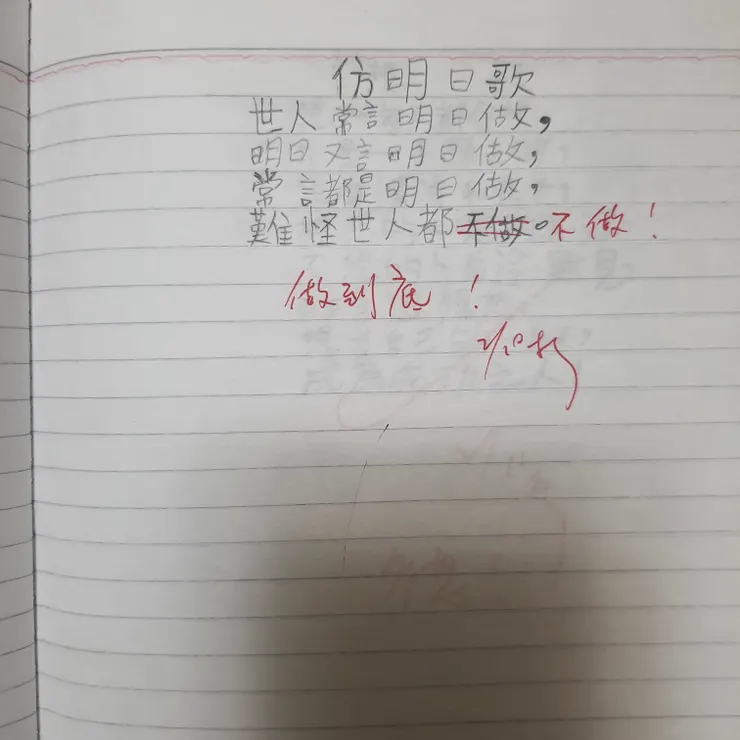 仿明日歌
世人常言明日做，
明日又言明日做，
常言都是明日做，
難怪世人都不做。不做！
做到底！